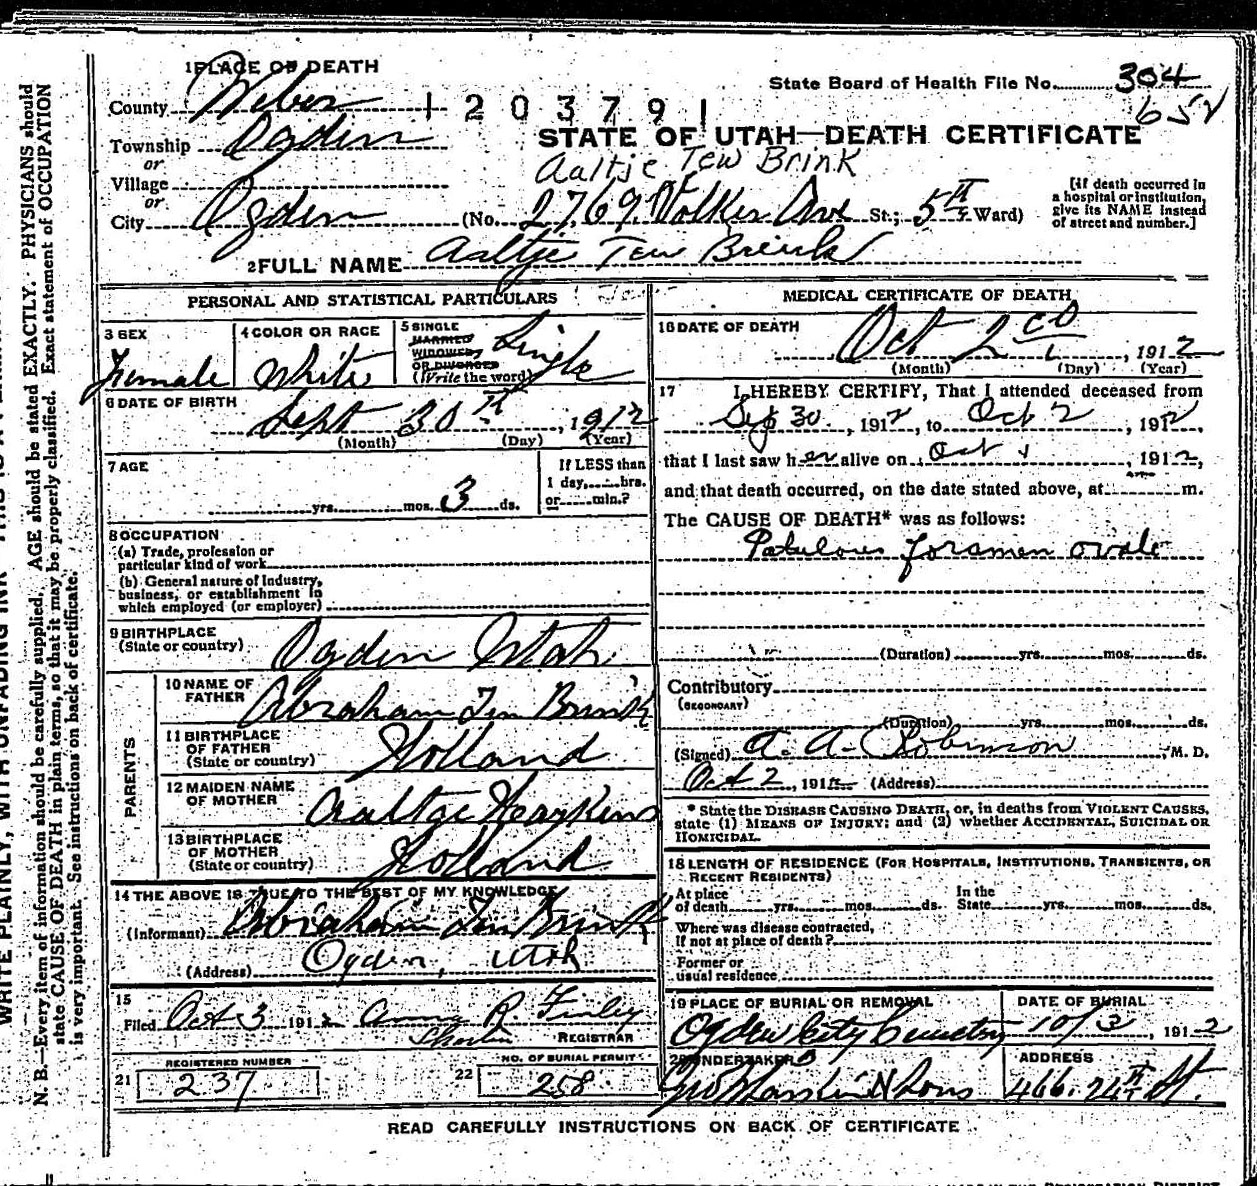 1 PLACE OF DEATH
State Board of Health File No. 304
652
County Weber
1 20379 1
Township Ogden
STATE OF UTAH—DEATH CERTIFICATE
or
Village
Aaltje Tew Brink
or
City Ogden (No. 2769 Volker Ave St.; 5th Ward)
[If death occurred in a hospital or institution, give its NAME instead of street and number.]
2 FULL NAME Aaltje Tew Breink
PERSONAL AND STATISTICAL PARTICULARS
3 SEX Female
4 COLOR OR RACE White
5 SINGLE
MARRIED
WIDOWED
OR DIVORCED
(Write the word) Single
6 DATE OF BIRTH
Sept 30th, 1912
(Month) (Day) (Year)
7 AGE
yrs. mos. 3 ds.
If LESS than
1 day, hrs.
or min.?
8 OCCUPATION
(a) Trade, profession or
particular kind of work
(b) General nature of Industry,
business, or establishment in
which employed (or employer)
9 BIRTHPLACE
(State or country) Ogden Utah
PARENTS
10 NAME OF
FATHER Abraham Ten Brink
11 BIRTHPLACE
OF FATHER
(State or country) Holland
12 MAIDEN NAME
OF MOTHER Aaltge
13 BIRTHPLACE
OF MOTHER
(State or country) Holland
14 THE ABOVE IS TRUE TO THE BEST OF MY KNOWLEDGE
(Informant) Abraham Ten Brink
(Address) Ogden, Utah
15
Filed Oct 3 1912 Anna R Finley
REGISTRAR
REGISTERED NUMBER
21 237
NO. OF BURIAL PERMIT
22 258
MEDICAL CERTIFICATE OF DEATH
16 DATE OF DEATH
Oct 2, 1912
(Month) (Day) (Year)
17 I HEREBY CERTIFY, That I attended deceased from
Sep 30, 1912, to Oct 2, 1912,
that I last saw her alive on Oct 1, 1912,
and that death occurred, on the date stated above, at m.
The CAUSE OF DEATH* was as follows:
Patulous foramen ovale
(Duration) yrs. mos. ds.
Contributory
(SECONDARY)
(Duration) yrs. mos. ds.
(Signed) A. A. Robinson, M. D.
Oct 2, 1912 (Address)
* State the DISEASE CAUSING DEATH, or, in deaths from VIOLENT CAUSES,
state (1) MEANS OF INJURY; and (2) whether ACCIDENTAL, SUICIDAL OR
HOMICIDAL.
18 LENGTH OF RESIDENCE (FOR HOSPITALS, INSTITUTIONS, TRANSIENTS, OR
RECENT RESIDENTS)
At place
of death yrs. mos. ds.
In the
State yrs. mos. ds.
Where was disease contracted,
if not at place of death?
Former or
usual residence
19 PLACE OF BURIAL OR REMOVAL
Ogden City Cemetery
DATE OF BURIAL
10/3, 1912
20 UNDERTAKER
ADDRESS
466. 24th St.
READ CAREFULLY INSTRUCTIONS ON BACK OF CERTIFICATE
N. B.—Every item of information should be carefully supplied. AGE should be stated EXACTLY. PHYSICIANS should
state CAUSE OF DEATH in plain terms, so that it may be properly classified. Exact statement of OCCUPATION
is very important. See instructions on back of certificate.
WRITE PLAINLY, WITH UNFADING INK